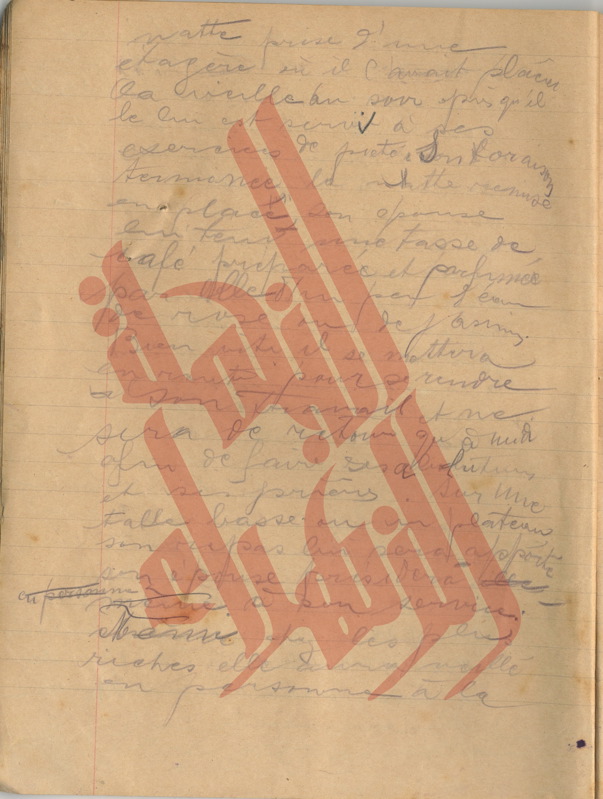 natte prise d'une
etagère où il l'avait placée
la veille au soir après qu'il
le lui est servi à ses
exercices de piété. Son Coran
terminée la natte remise
en place, son epouse
lui tend une tasse de
café preparée et parfumée
par elle d'un peu d'eau
de rose ou de jasmin.
Bien vite il se mettera
en route pour se rendre
a son travail et ne
sera de retour qu'à midi
afin de faire ses ablutions
et ses prières. Sur une
table basse ou un plateau
son repas lui sera apporté
son épouse présidera
en personne
à son service.
chez les plus
riches elle aura veillé
en personne à la